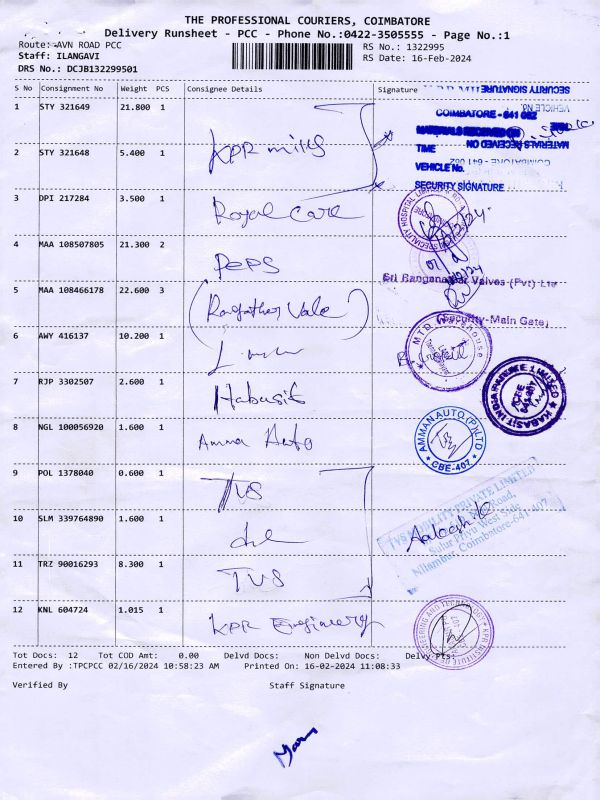 THE PROFESSIONAL COURIERS, COIMBATORE
Delivery Runsheet - PCC - Phone No.:0422-3505555 - Page No.:1
Route: AVN ROAD PCC
RS No.: 1322995
Staff: ILANGAVI
RS Date: 16-Feb-2024
DRS No.: DCJB132299501
S No Consignment No Weight PCS Consignee Details Signature
SECURITY SIGNATURE
VEHICLE NO.
1 STY 321649 21.800 1
COIMBATORE - 641 062
MATERIALS RECEIVED ON
KPR mills
2 STY 321648 5.400 1
TIME
MATERIALS RECEIVED ON
VEHICLE No.
COIMBATORE - 641 062
SECURITY SIGNATURE
3 DPI 217284 3.500 1 Royal Care
4 MAA 108507805 21.300 2 Peps
5 MAA 108466178 22.600 3
Valves (Pvt) Ltd
(Security-Main Gate)
6 AWY 416137 10.200 1
MTD WAREHOUSE
7 RJP 3302507 2.600 1 Habasit
HABASIT INDIA PRIVATE LIMITED
8 NGL 100056920 1.600 1 Amma Auto
AMMAN AUTO (P) LTD
CBE-407
9 POL 1378040 0.600 1 TVS
TVS MOBILITY PRIVATE LIMITED
Road,
Sulur Pirvu West Side
Nilambur, Coimbatore-641-407
10 SLM 339764890 1.600 1
11 TRZ 90016293 8.300 1 TVS
12 KNL 604724 1.015 1 KPR Engineering
KPR INSTITUTE OF ENGINEERING AND TECHNOLOGY
Tot Docs: 12 Tot COD Amt: 0.00 Delvd Docs: Non Delvd Docs: Delvy Pts:
Entered By :TPCPCC 02/16/2024 10:58:23 AM Printed On: 16-02-2024 11:08:33
Verified By Staff Signature